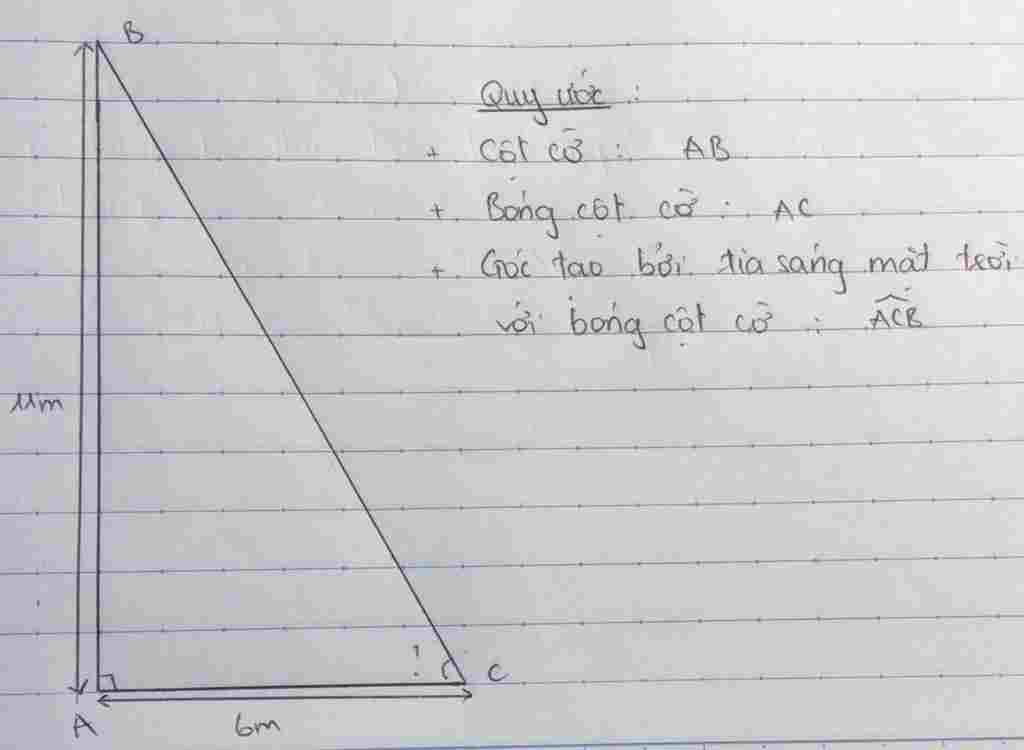 B
Quy ước :
+ Cột cờ : AB
+ Bóng cột cờ : AC
+ Góc tạo bởi tia sáng mặt trời
với bóng cột cờ : ACB
11m
? C
A 6m